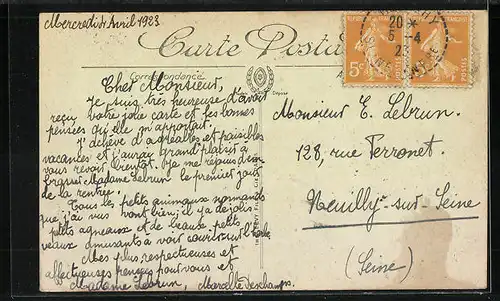 Mercredi 4 Avril 1923
Carte Postale
Correspondance
Cher Monsieur,
Je suis très heureuse d'avoir
reçu votre jolie carte et les bonnes
pensées qu'elle m'apportait.
J'achève d'agréables et paisibles
vacances et j'aurai grand plaisir à
vous revoir bientôt. Je me réjouis d'em
brasser Madame Lebrun le premier jour
de la rentrée.
Tous les petits animaux normands
que j'ai vus vont bien; il y a de jolis
petits agneaux et de beaux petits
veaux amusants à voir courir sur l'herbe
Mes plus respectueuses et
affectueuses pensées pour vous et
Madame Lebrun, Marcelle Deschamps.
20 *
6 - 4
23
5c
POSTES
POSTES
Monsieur E. Lebrun.
128, rue Perronet.
Neuilly-sur-Seine
(Seine)